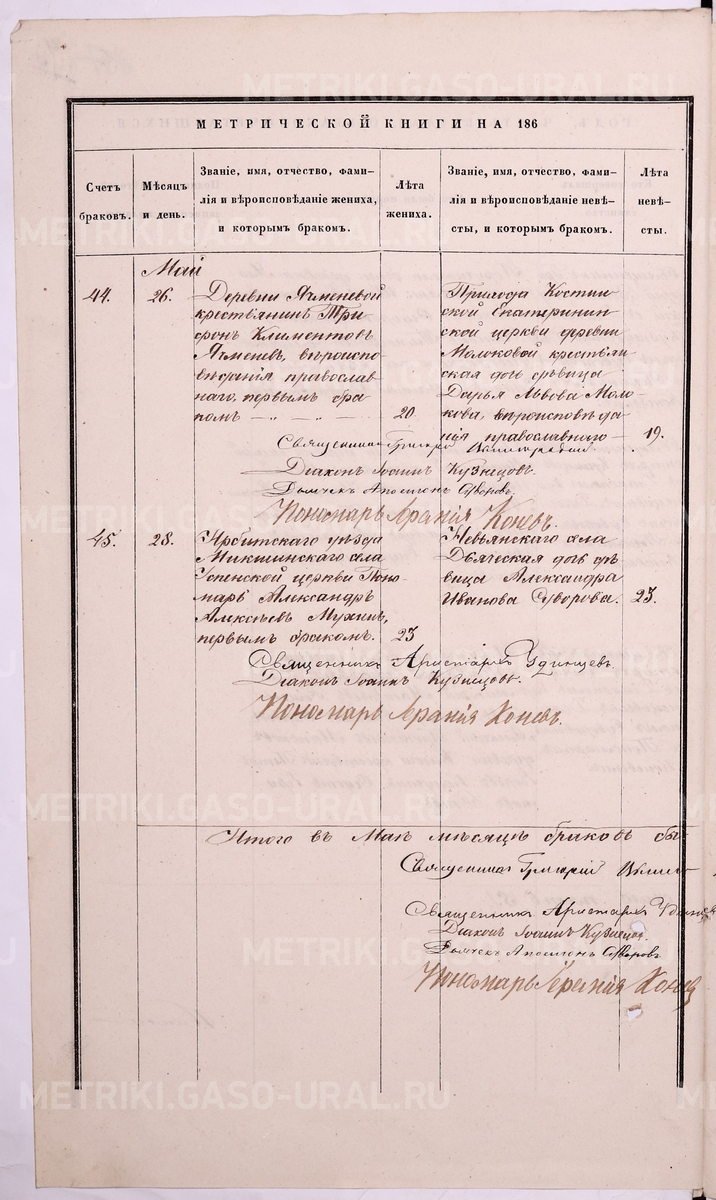 МЕТРИЧЕСКОЙ КНИГИ НА 186
Счетъ браковъ.
Мѣсяцъ и день.
Званіе, имя, отчество, фами-
лія и вѣроисповѣданіе жениха,
и которымъ бракомъ.
Лѣта жениха.
Званіе, имя, отчество, фами-
лія и вѣроисповѣданіе невѣ-
сты, и которымъ бракомъ.
Лѣта невѣ-
сты.
Май
44.
26.
Деревни Ячменевой
крестьянинъ Три
фонъ Климентовъ
Ячменевъ, вѣроиспо
вѣданія православ
наго, первымъ бра
комъ
20
Прихода
ской Екатеринин
ской церкви деревни
Молоковой крестьян
ская дочь дѣвица
Дарья Львова Моло
кова, вѣроисповѣда
нія православнаго
19.
Священникъ Григорій
Діаконъ Іоаннъ Кузнецовъ.
Дьячекъ Суворовъ.
Пономарь Коневъ.
45.
28.
Ирбитскаго уѣзда
села
церкви Поно
марь Александръ
Алексѣевъ Мухинъ,
первымъ бракомъ.
23
Невьянскаго села
Дьяческая дочь дѣ
вица Александра
Иванова Суворова.
23.
Священникъ Аристархъ Удинцевъ.
Діаконъ Іоаннъ Кузнецовъ.
Пономарь Коневъ.
Итого въ Маѣ мѣсяцѣ браковъ бы
Священникъ Григорій
Священникъ Аристархъ Удинцев
Діаконъ Іоаннъ Кузнецов
Дьячекъ Суворовъ
Пономарь Конев
METRIKI.GASO-URAL.RU